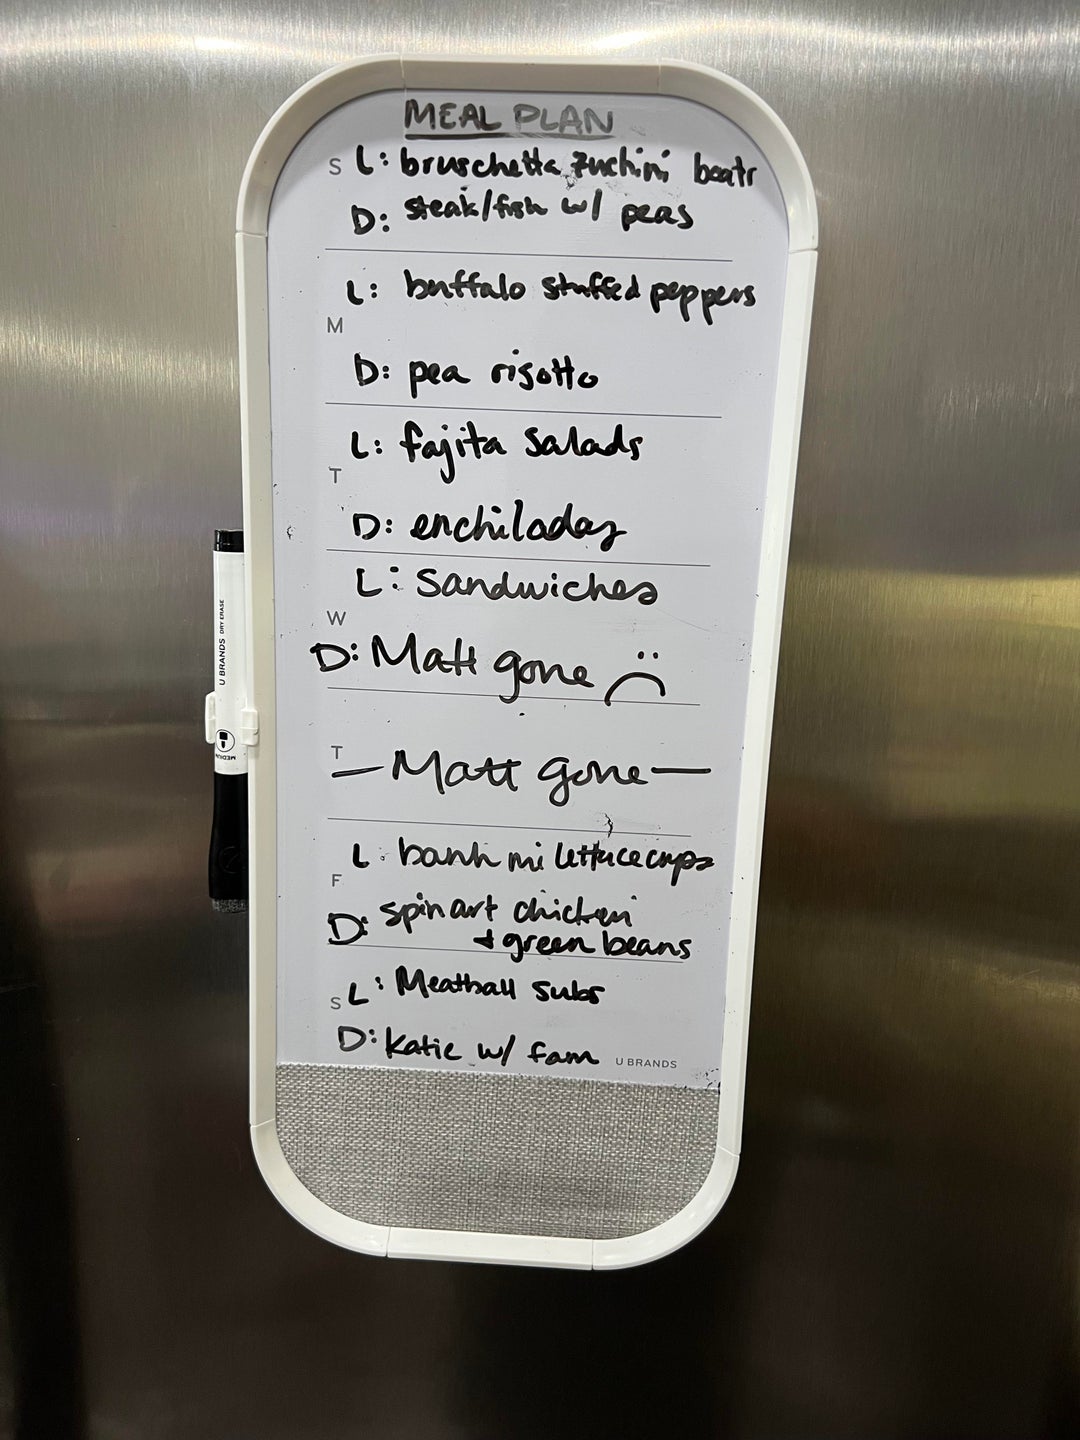 MEAL PLAN
S L: bruschetta zuchini boats
D: steak/fish w/ peas
L: buffalo stuffed peppers
M
D: pea risotto
L: fajita salads
T
D: enchiladas
L: sandwiches
W
D: Matt gone
T
— Matt gone —
L: banh mi lettuce cups
F
D: spinart chicken
+ green beans
S L: Meatball subs
D: Katie w/ fam
U BRANDS
U BRANDS DRY ERASE
MEDIUM